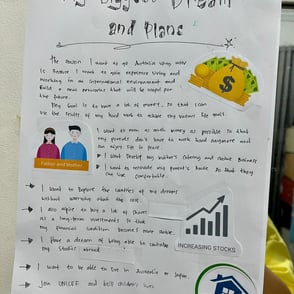 My Biggest Dream
and Plans
The reason I want to go Australia very much
is because I want to gain experience living and
working in an international environment and
Build a new networks that will be useful for
the future.
My Goal is to have a lot of money, so that I can
use the results of my hard work to achieve my various life goals.
I want to earn as much money as possible so that
my parents don't have to work hard anymore and
can enjoy life in peace.
I want Develop my mother's Catering and Business
I want to renovate my parents' house so that they
can live comfortable.
Father and Mother
I want to Explore the countries of my dreams
without worrying about the cost.
I also aspire to buy a lot of shares
as a long-term investments so that
my financial condition becomes more stable.
I have a dream of being able to continue
my studies abroad
INCREASING STOCKS
I want to be able to live in Australia or Japan.
Join UNICEF and help children's lives